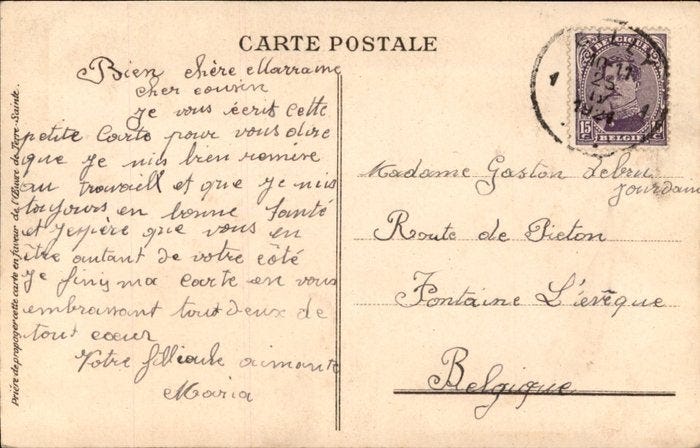 CARTE POSTALE
Bien chère Marraine
cher cousin
je vous écrit cette
petite carte pour vous dire
que je suis bien remise
au travaill et que je suis
toujours en bonne santé
et j'espère que vous en
être autant de votre côté
Je finis ma carte en vous
embrassant tout deux de
tout cœur
Votre filleule aimante
Maria
Prière de propager cette carte en faveur de l'Œuvre de Terre-Sainte.
BELGIQUE
15
BELGIE
1
1
1921
Madame Gaston Lebru
Jourdain
Route de Pieton
Fontaine L'ievêque
Belgique